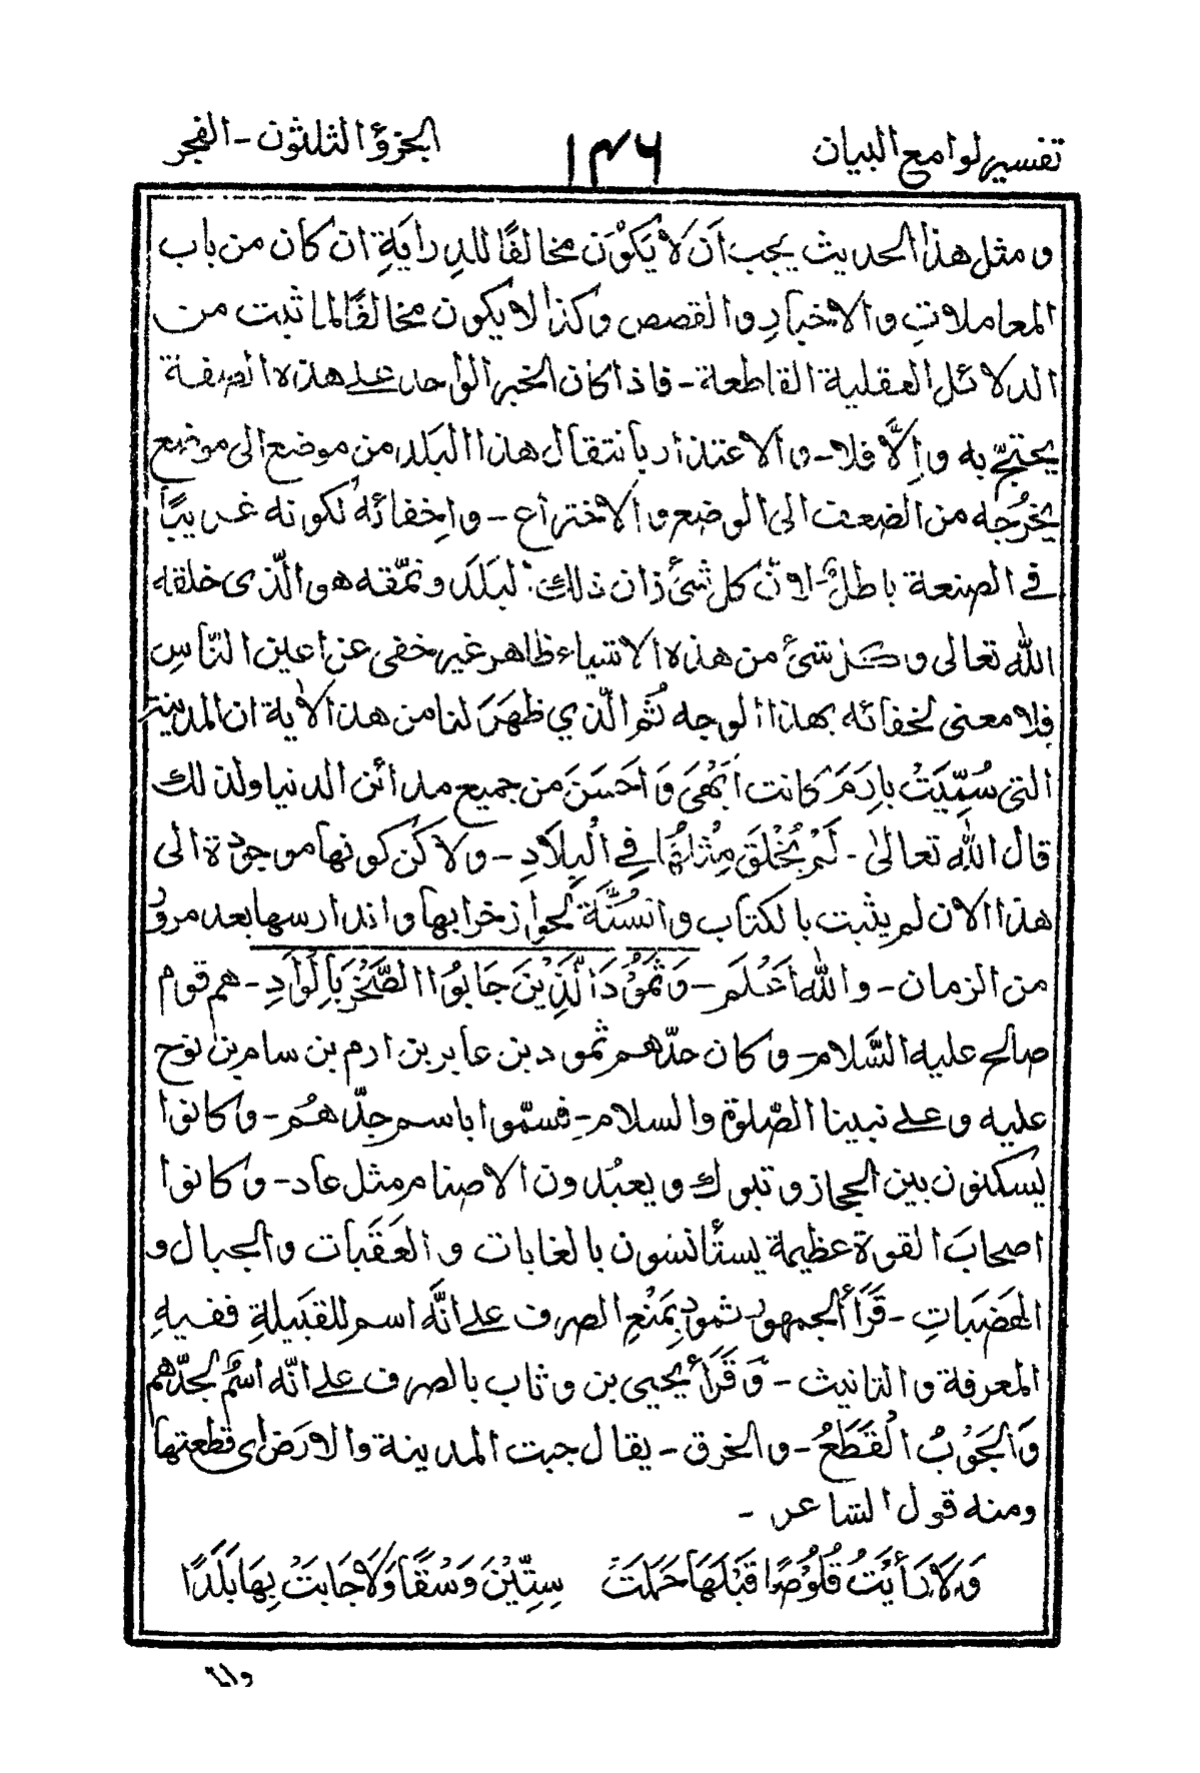 تفسير لوامع البيان ١٣٦ الجزؤ الثلثون - الفجر
ومثل هذا الحديث يجب اَن لَا يَكوْنَ مخالفًا للدِرايَةِ ان كان من باب
المعاملاتِ والاخبارِ والقصص وكذا لا يكون مخالفًا لما ثبت من
الدلائل العقلية القاطعة - فاذا كان الخبر الواحد على هذه الصفة
يحتجّ به واِلَّا فلا - والاعتذار بانتقال هذا البلد من موضع الى موضع
يخرُجه من الضعف الى الوضع والاختراع - واخفائهٗ لكونه غريبًا
فى الصنعة باطلٌ - لانّ كل شئ زان ذالك البَلَدَ ونمّقه هو الّذى خلقه
اللّٰه تعالى وكل شئ من هذه الاشياء ظاهر غير خفى عن اعين النّاسِ
فلا معنى لخفائه بهذا الوجه ثُم الّذي ظهَرَ لنا من هذا الاٰية ان المدينة
التى سُمِّيَتْ بِاِرَمَ كانت اَبْهٰى وَاَحْسَنَ من جميع مدائن الدنيا ولذلك
قال اللّٰه تعالىٰ - لَمْ يُخْلَقْ مِثْلُهَا فِي الْبِلَادِ - ولاكن كونها موجودة الى
هذا الان لم يثبت بالكتاب والسُنَّة لجواز خرابها واندارسها بعد مرورٍ
من الزمان - واللّٰه اَعْلَم - وَثَمُوْدَ الَّذِيْنَ جَابُوْا الصَّخْرَ بِالْوَادِ - هم قوم
صالح عليه السَّلام - وكان جدّهم ثمود بن عابر بن ارم بن سام بن نوح
عليه وعلى نبينا الصّلوة والسلام - فسمّوا باسم جدّهُم - وكانوا
يسكنون بين الحجاز وتبوك ويعبُدون الاصنام مِثل عاد - وكانوا
اصحابَ القوة عظيمة يستأنسون بالغابات والعَقَبات والجبال و
الهَضَباتِ - قَرَأَ الجمهور ثمود بِمَنْعِ الصرف على انَّه اسم للقَبيلةِ ففيهِ
المعرفة والتانيث - وَقَرَأَ يحيى بن وثاب بالصرف على انّه اسْمٌ لجدّهم
وَالجَوْبُ الْقَطَعُ - والخرق - يقال جبت المدينة والارَض اى قطعتها
ومنه قول الشاعر -
وَلَا رَأَيْتُ قُلُوْصًا قَبْلَهَا حَمَلَتْ سِتِّيْنَ وَسْقًا وَلَا جَابَتْ بِهَا بَلَدًا